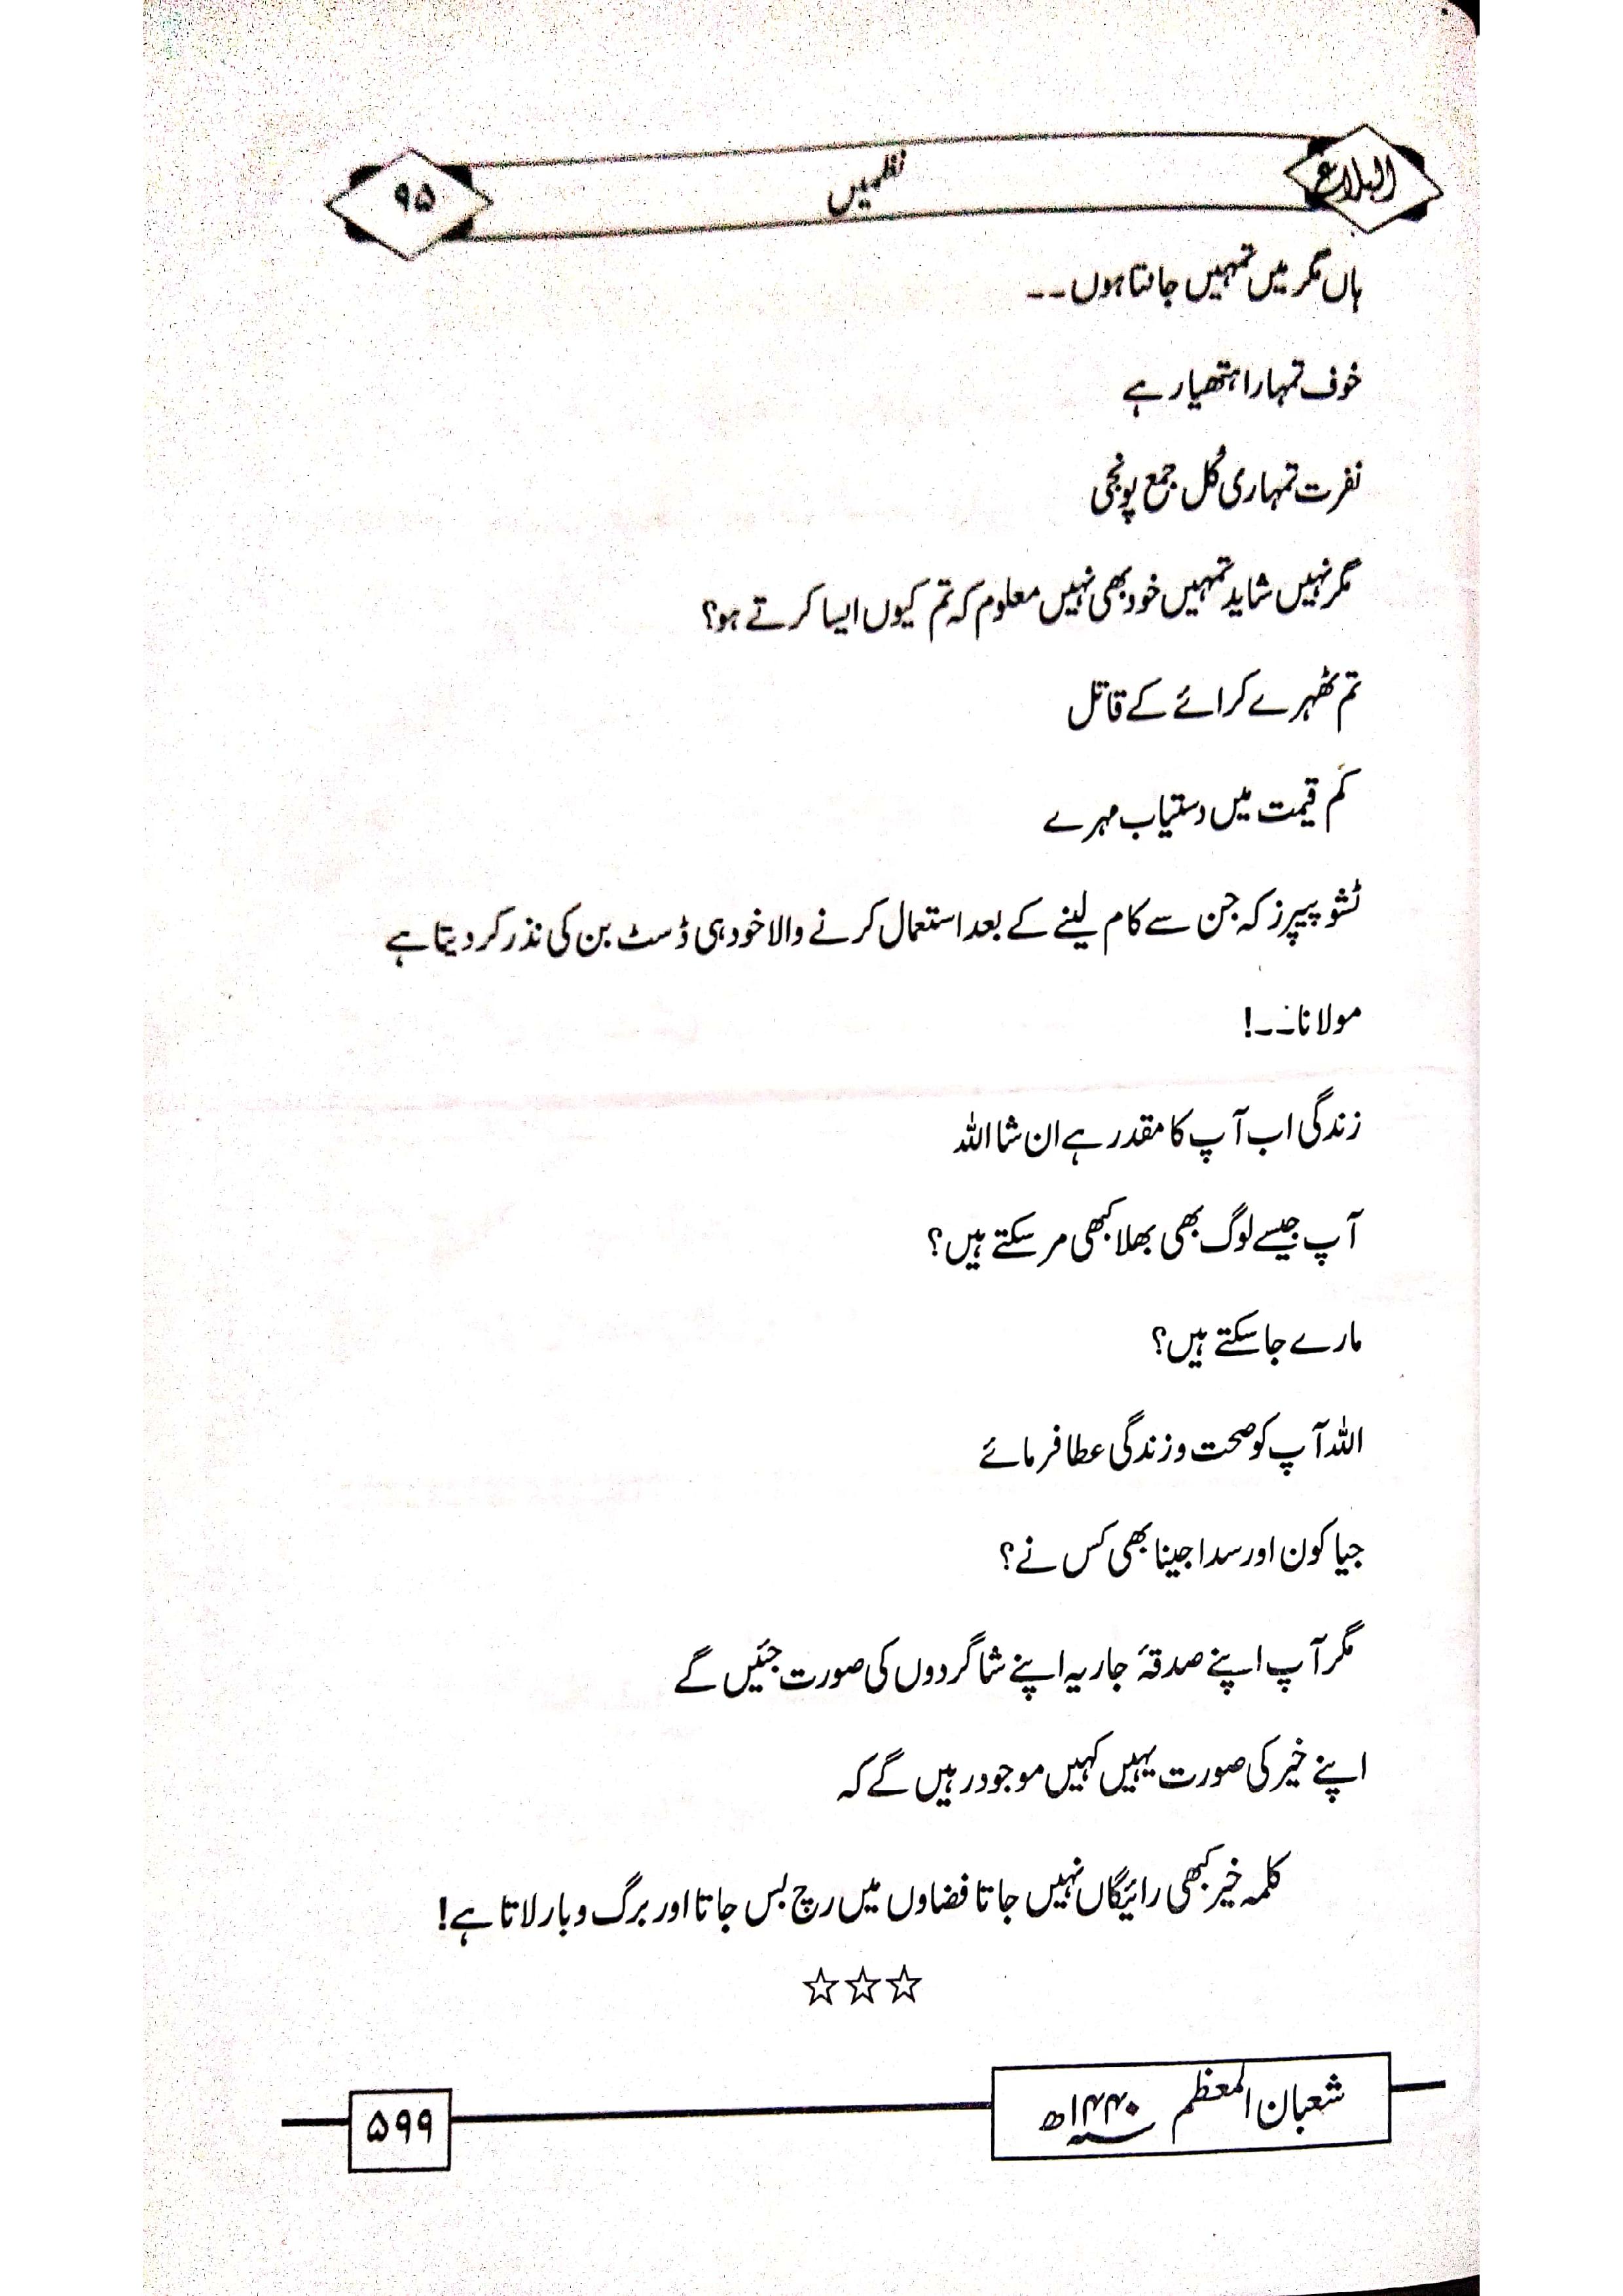 البلاغ
نظمیں
۹۵
ہاں مگر میں تمہیں جانتا ہوں۔۔
خوف تمہارا ہتھیار ہے
نفرت تمہاری کُل جمع پونجی
مگر نہیں شاید تمہیں خود بھی نہیں معلوم کہ تم کیوں ایسا کرتے ہو؟
تم ٹھہرے کرائے کے قاتل
کم قیمت میں دستیاب مہرے
ٹشو پیپرز کہ جن سے کام لینے کے بعد استعمال کرنے والا خود ہی ڈسٹ بن کی نذر کر دیتا ہے
مولانا۔۔۔!
زندگی اب آپ کا مقدر ہے ان شا اللہ
آپ جیسے لوگ بھی بھلا کبھی مر سکتے ہیں؟
مارے جا سکتے ہیں؟
اللہ آپ کو صحت و زندگی عطا فرمائے
جیا کون اور سدا جینا بھی کس نے؟
مگر آپ اپنے صدقۂ جاریہ اپنے شاگردوں کی صورت جئیں گے
اپنے خیر کی صورت یہیں کہیں موجود رہیں گے کہ
کلمہ خیر کبھی رائیگاں نہیں جاتا فضاوں میں رچ بس جاتا اور برگ و بار لاتا ہے!
☆☆☆
شعبان المعظم ۱۴۴۰ھ
۵۹۹